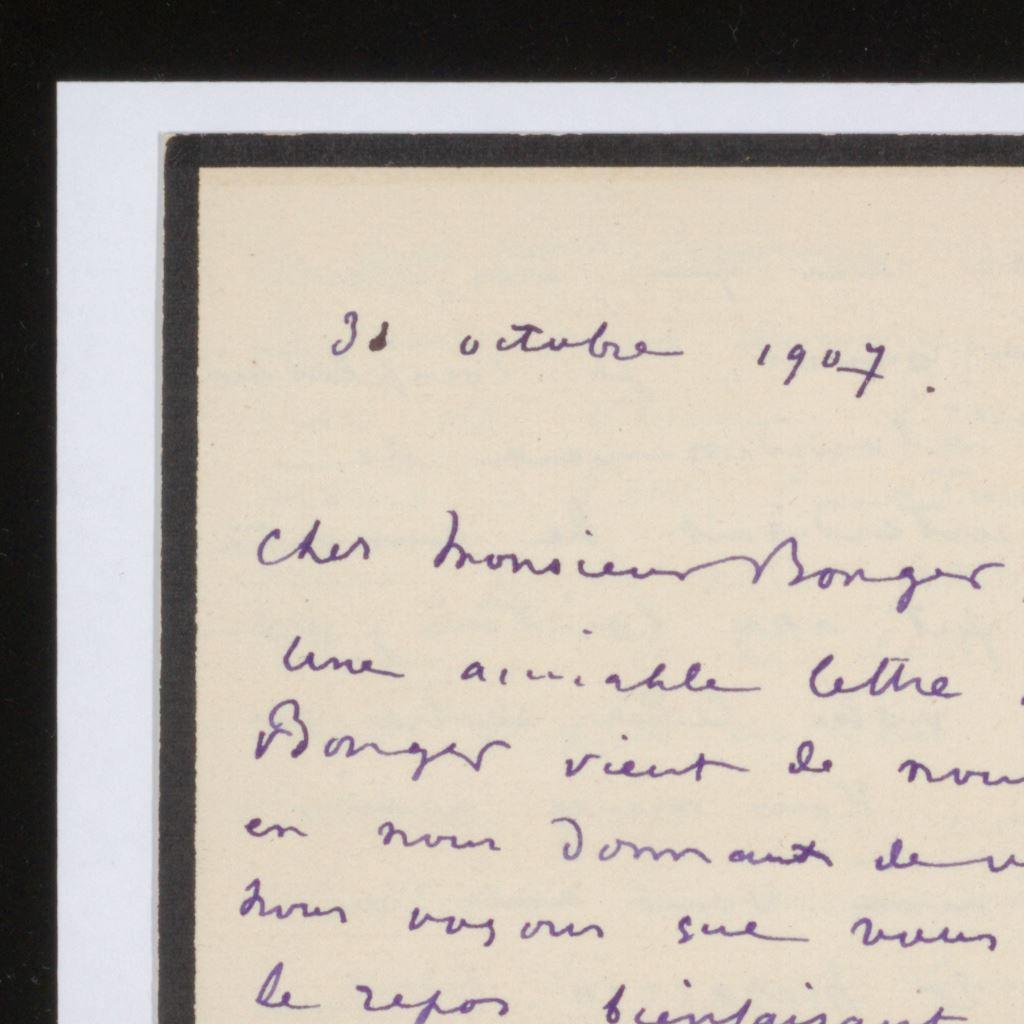 31 octobre 1907.
Cher Monsieur Bonger
Une aimable lettre
Bonger vient de nou
en nous donnant de
nous voyons que vous
le repos bienfaisant